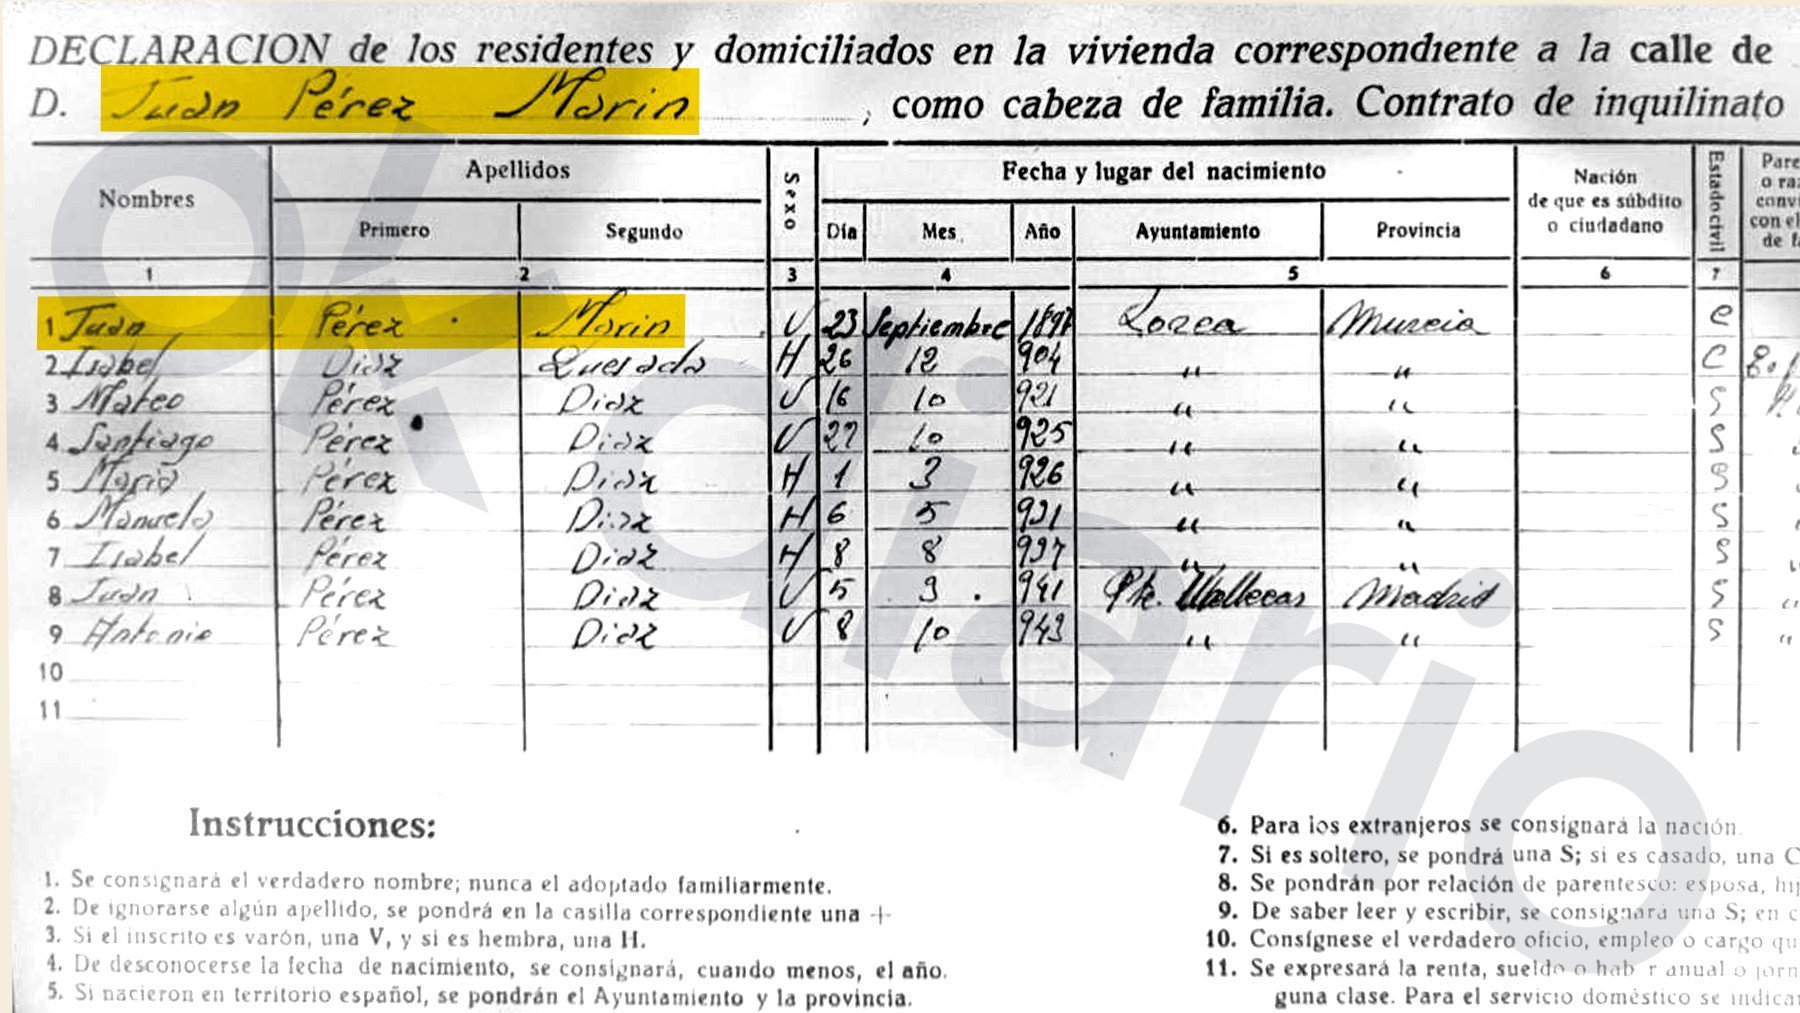 DECLARACION de los residentes y domiciliados en la vivienda correspondiente a la calle de
D. Juan Pérez Marin, como cabeza de familia. Contrato de inquilinato
Nombres Apellidos Sexo Fecha y lugar del nacimiento Nación de que es súbdito o ciudadano Estado civil
Primero Segundo Día Mes. Año Ayuntamiento Provincia
1 2 3 4 5 6 7
1 Juan Pérez Marin V 23 Septiembre 1897 Lorca Murcia C
2 Isabel Diaz Quesada H 26 12 904 " " C
3 Mateo Pérez Diaz V 16 10 921 " " S
4 Santiago Pérez Diaz V 27 10 925 " " S
5 Maria Pérez Diaz H 1 3 926 " " S
6 Manuela Pérez Diaz H 6 5 931 " " S
7 Isabel Pérez Diaz H 8 8 937 " " S
8 Juan Pérez Diaz V 5 3 941 Pte. Vallecas Madrid S
9 Antonio Pérez Diaz V 8 10 943 " " S "
10
11
okdiario
Instrucciones:
1. Se consignará el verdadero nombre; nunca el adoptado familiarmente.
2. De ignorarse algún apellido, se pondrá en la casilla correspondiente una +
3. Si el inscrito es varón, una V, y si es hembra, una H.
4. De desconocerse la fecha de nacimiento, se consignará, cuando menos, el año.
5. Si nacieron en territorio español, se pondrán el Ayuntamiento y la provincia.
6. Para los extranjeros se consignará la nación.
7. Si es soltero, se pondrá una S; si es casado, una C
8. Se pondrán por relación de parentesco: esposa, hij
9. De saber leer y escribir, se consignará una S; en c
10. Consígnese el verdadero oficio, empleo o cargo qu
11. Se expresará la renta, sueldo o hab r anual o jorn
guna clase. Para el servicio doméstico se indicar